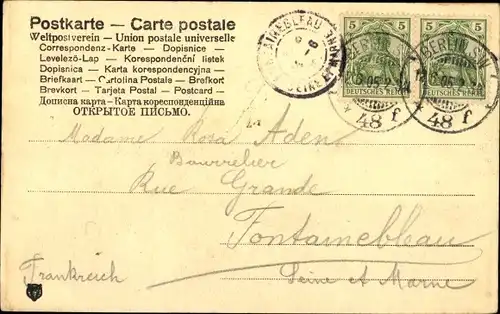 Postkarte — Carte postale
Weltpostverein — Union postale universelle
Correspondenz-Karte — Dopisnice
Levelező-Lap — Korespondenční listek
Dopisnica — Karta korespondencyjna —
Briefkaart — Cartolina Postale — Brefkort
Brevkort — Tarjeta Postal — Postcard —
Дописна карта — Карта кореспонденційна
ОТКРЫТОЕ ПИСЬМО.
5 5 5 5
DEUTSCHES REICH DEUTSCHES REICH
BERLIN SW BERLIN SW
48 f 48 f
FONTAINEBLEAU
SEINE ET MARNE
Madame Rosa Aden
Bourrelier
Rue Grande
Fontainebleau
Seine et Marne
Frankreich